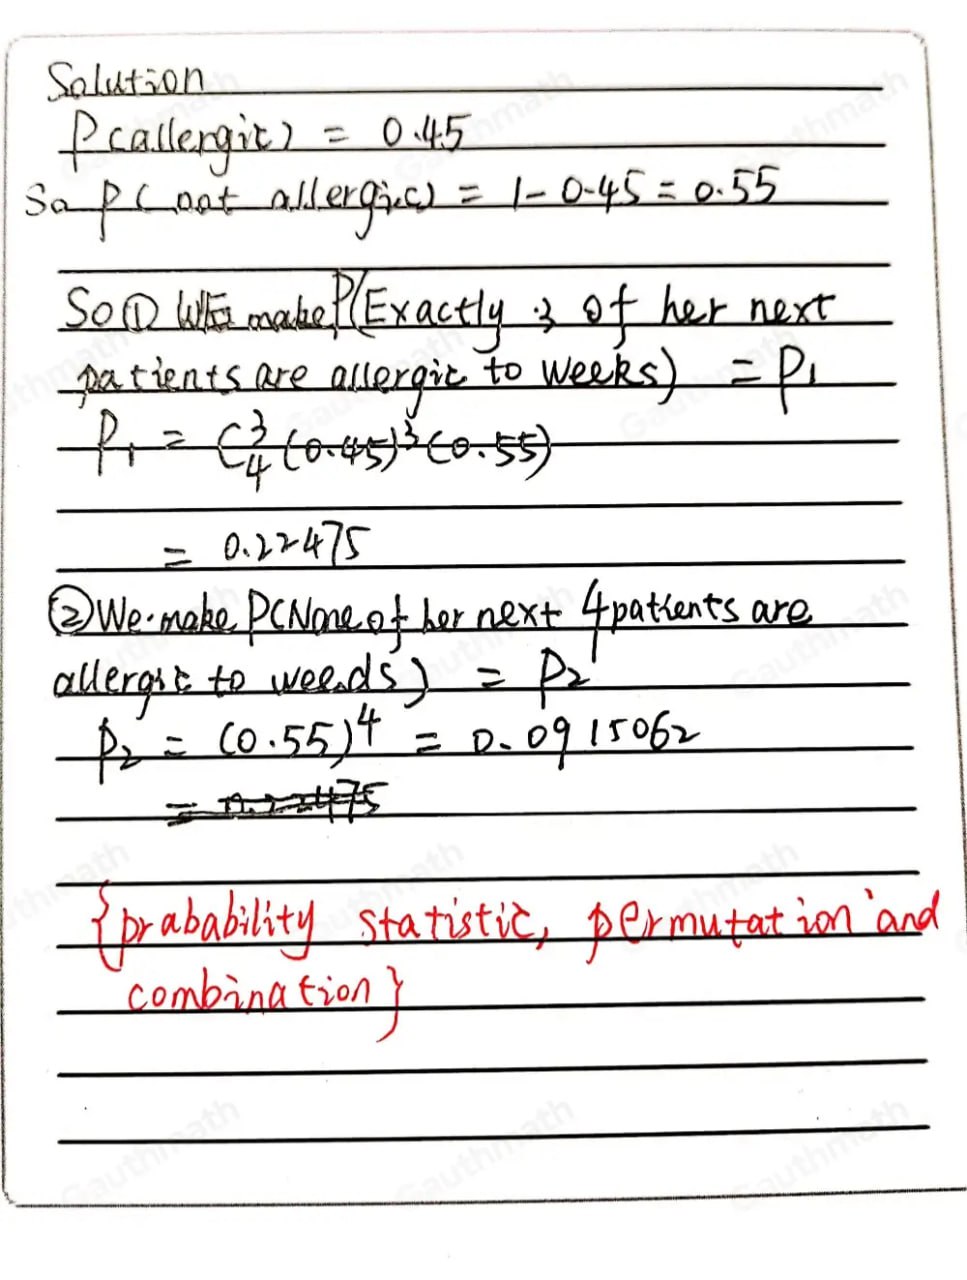 Solution
P(allergic) = 0.45
So P(not allergic) = 1-0.45=0.55
So① make P(Exactly 3 of her next
patients are allergic to weeks) = P₁
P₁ = C³₄(0.45)³(0.55)
= 0.22475
②We make P(None of her next 4 patients are
allergic to weeds) = P₂
P₂ = (0.55)⁴ = 0.0915062
= 0.22475
{prabability statistic, permutation and
combination}
Gauthmath